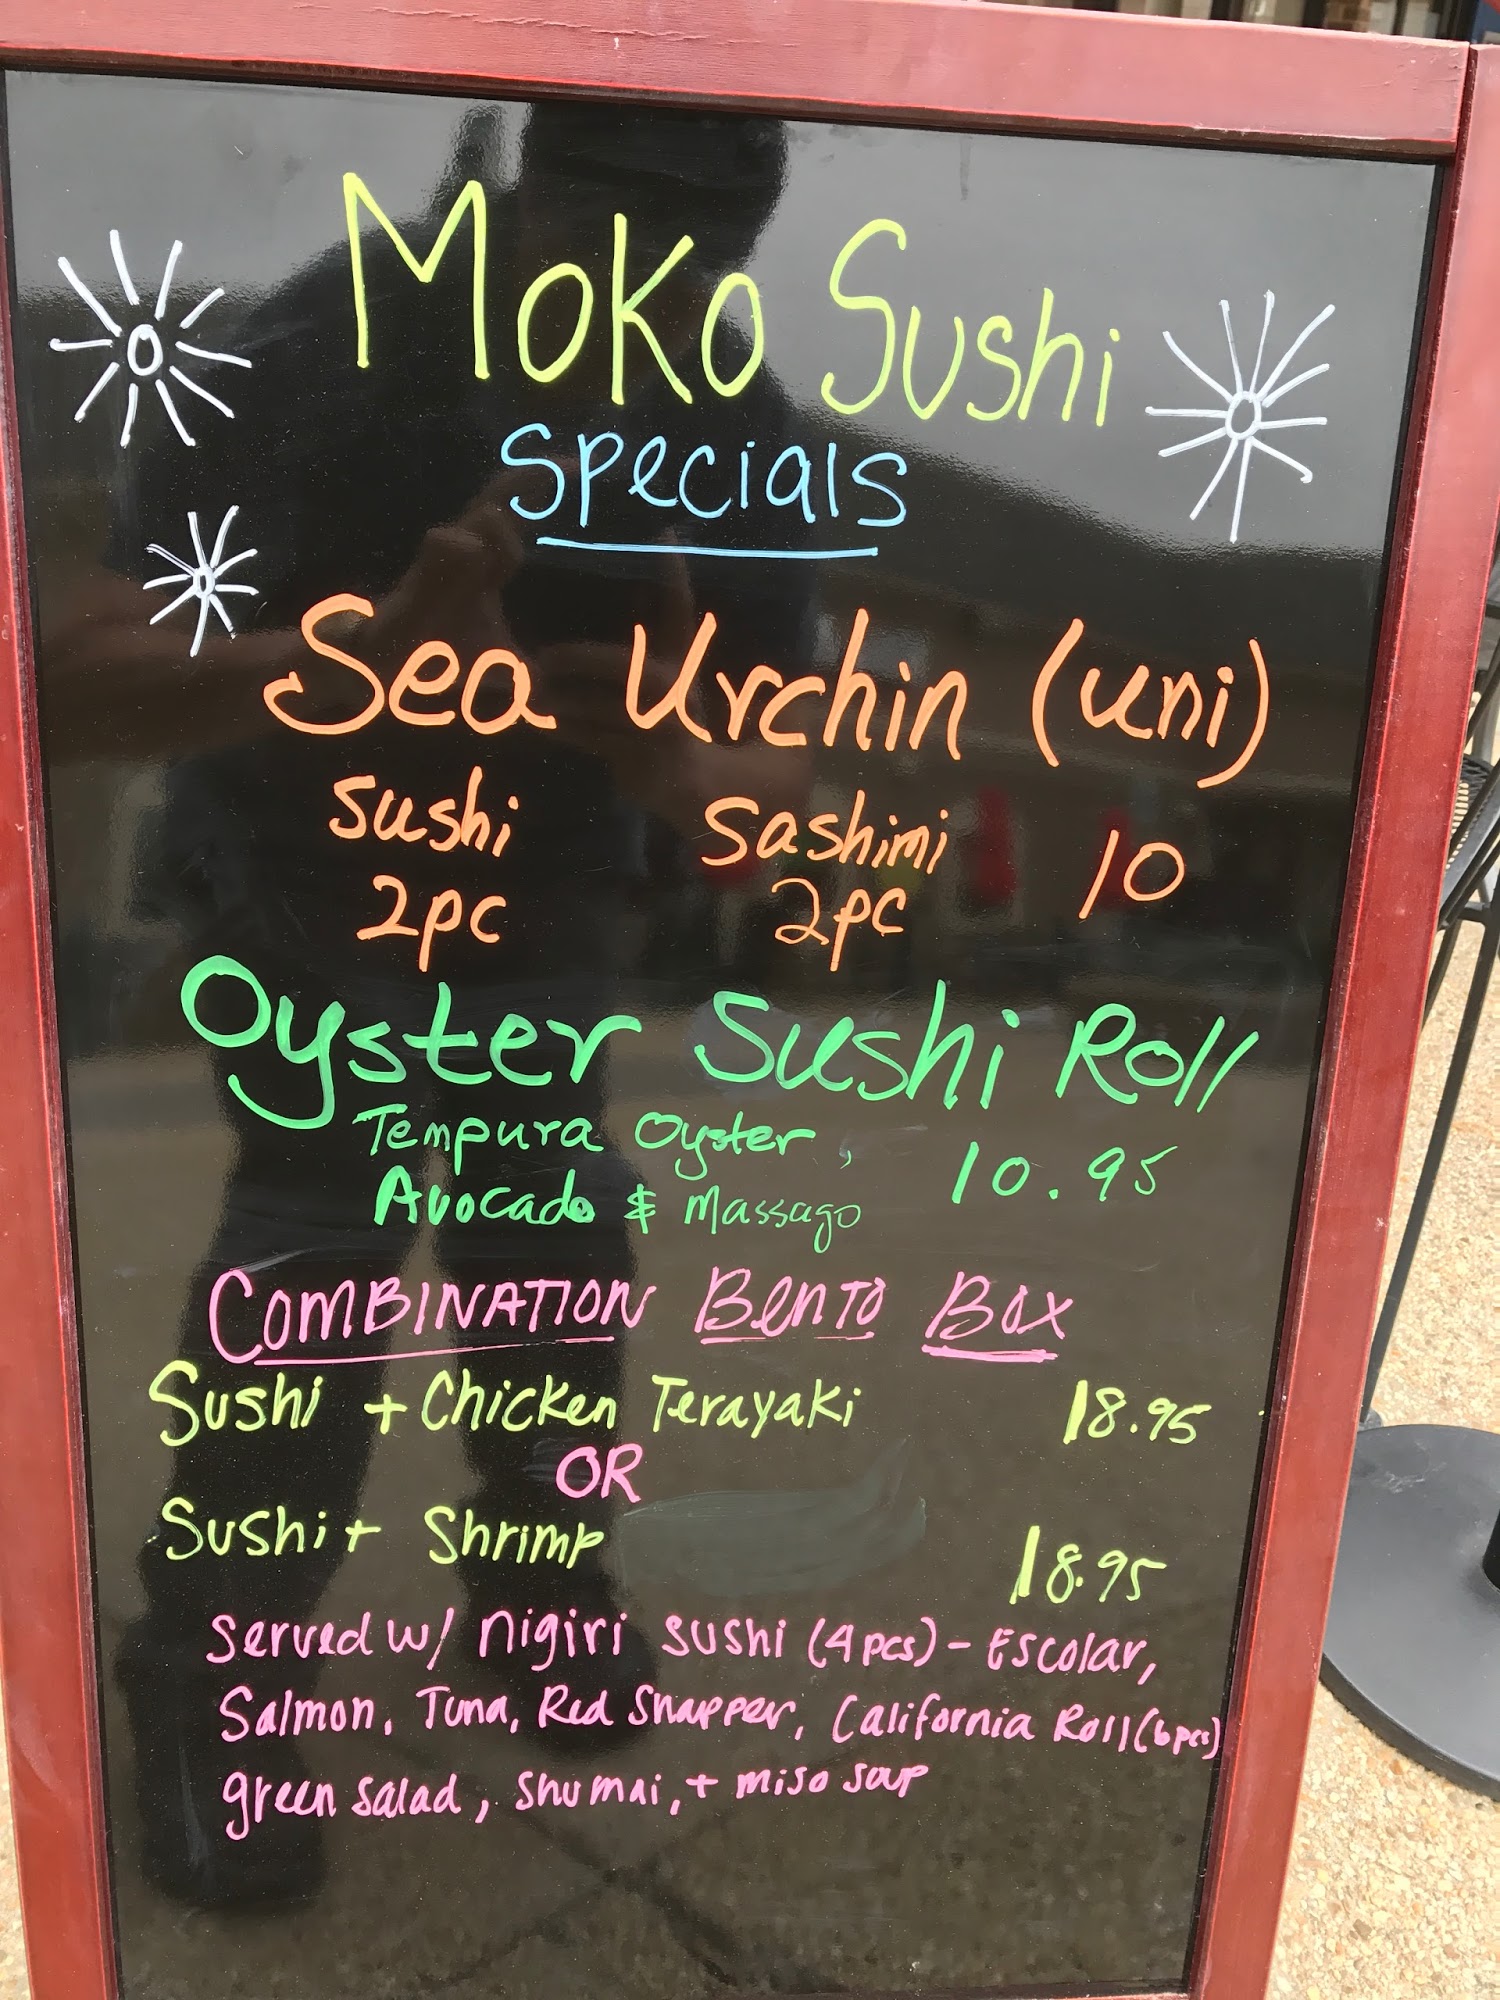 Moko Sushi
Specials
Sea Urchin (uni)
Sushi Sashimi 10
2pc 2pc
Oyster Sushi Roll
Tempura Oyster, 10.95
Avocado & Massago
COMBINATION BENTO BOX
Sushi + Chicken Terayaki 18.95
OR
Sushi + Shrimp 18.95
Served w/ nigiri sushi (4pcs) - Escolar,
Salmon, Tuna, Red Snapper, California Roll (6pcs)
green salad, shumai, + miso soup